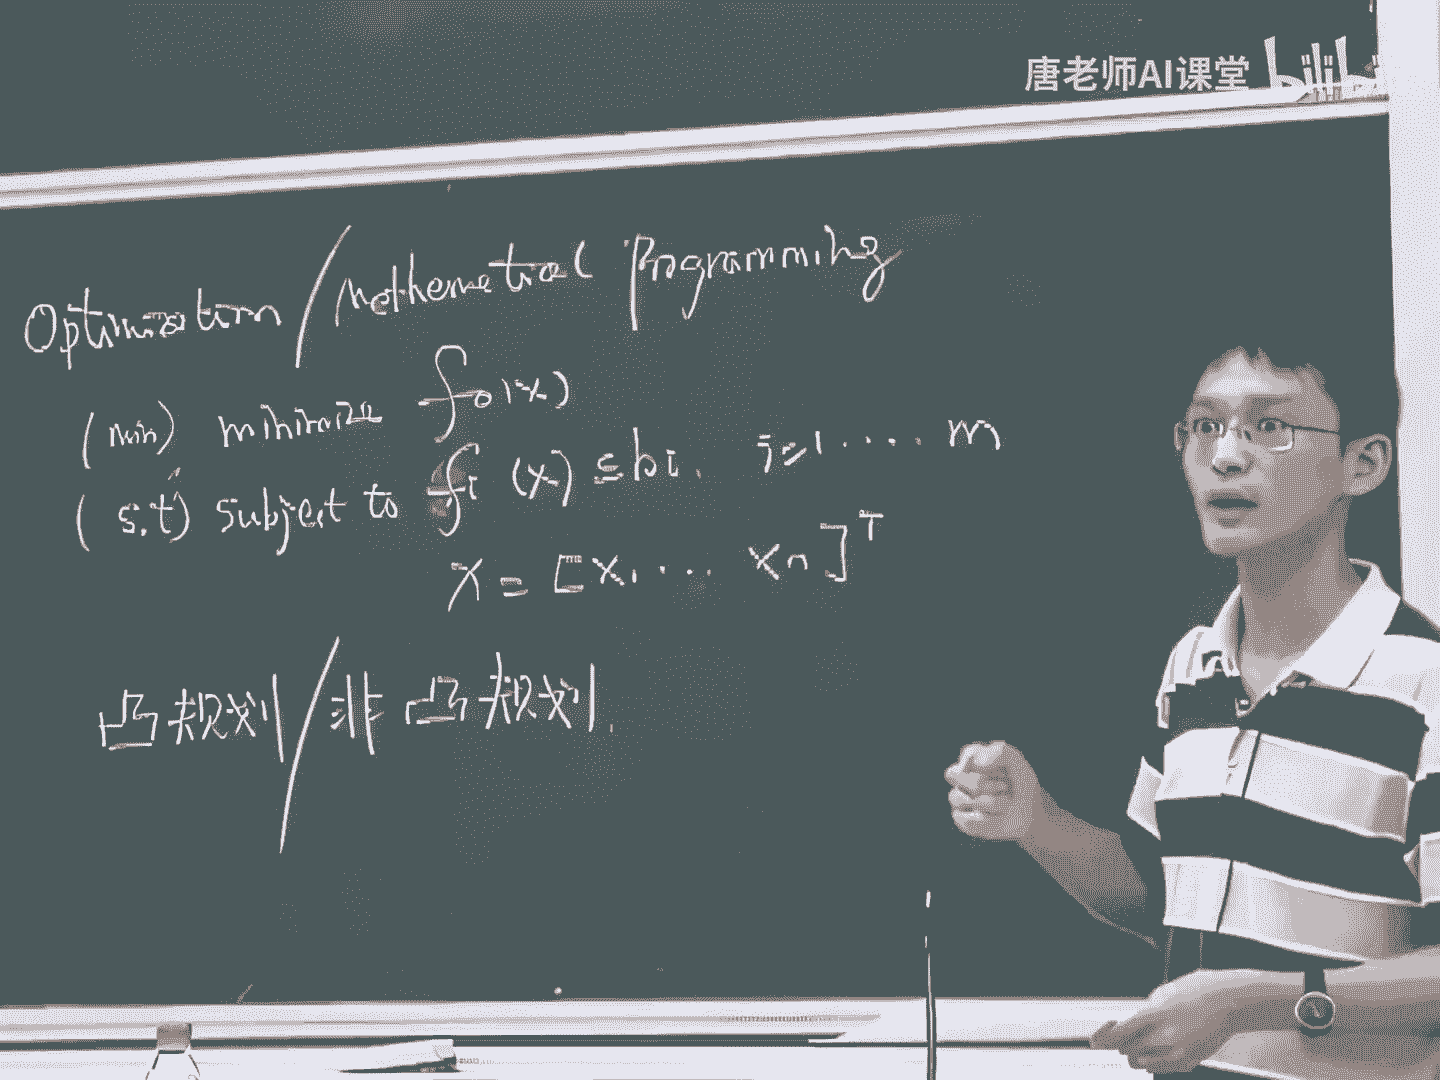 唐老师AI课堂 bilibi
Optimization / Mathematical Programming
(min) minimize f₀(x)
(s.t) subject to fi (x) ≤ bi, i=1....m
x = [x₁... xn]ᵀ
凸规划 / 非凸规划.